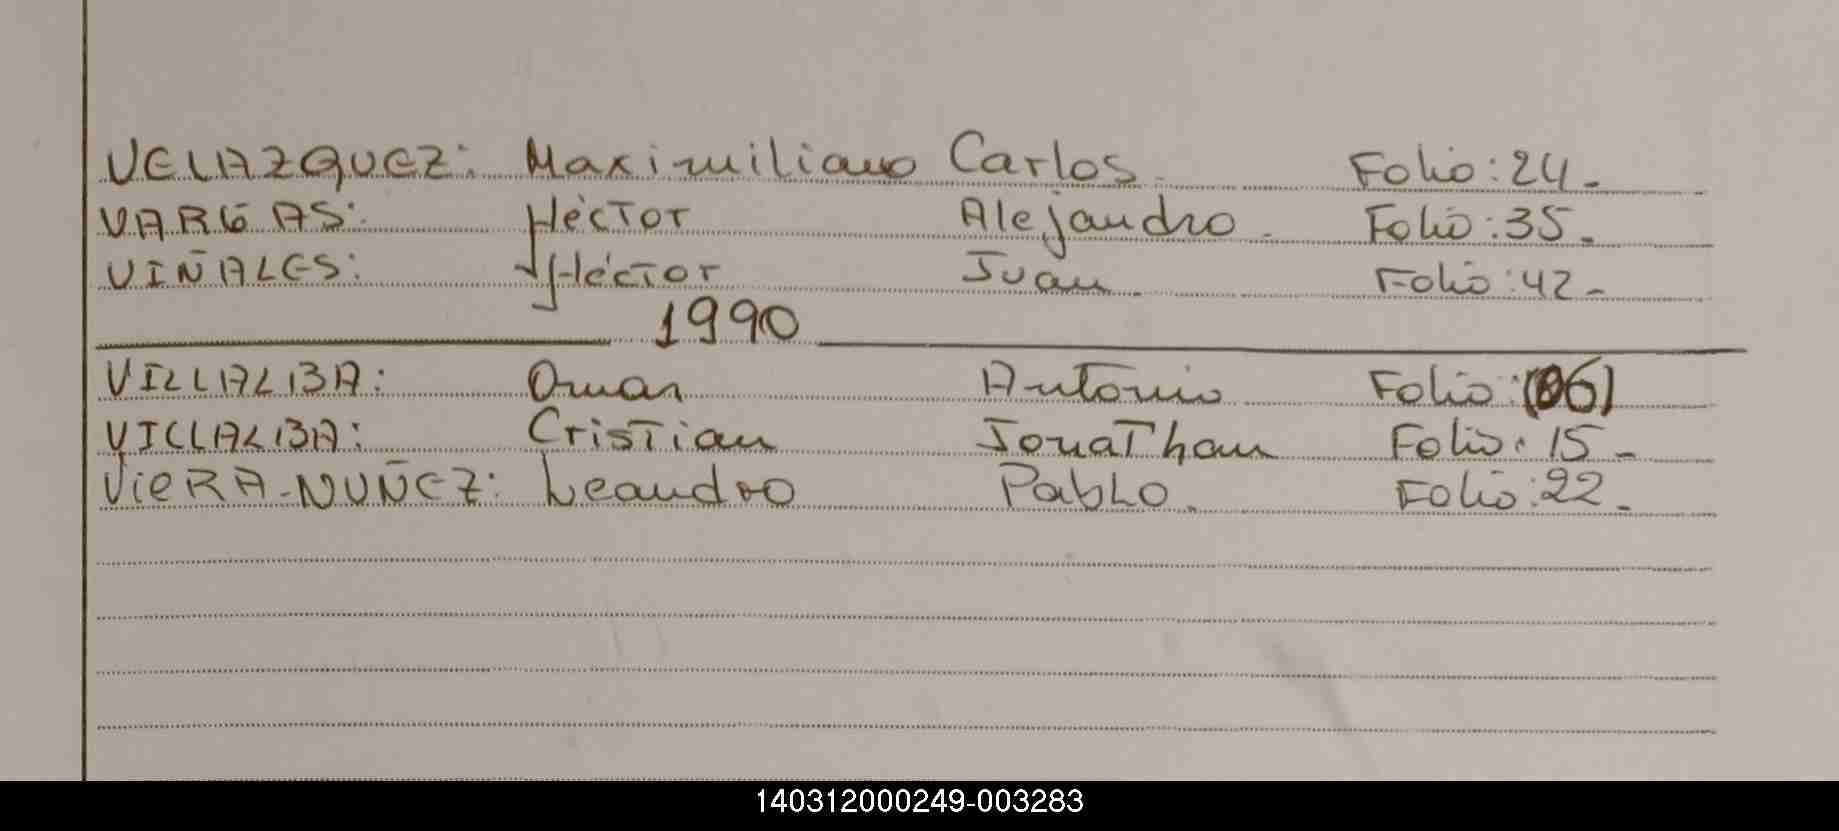 VELAZQUEZ: Maximiliano Carlos. Folio: 24.-
VARGAS: Héctor Alejandro. Folio: 35.-
VIÑALES: Héctor Juan. Folio: 42.-
1990
VILLALBA: Omar Antonio Folio: (06)
VILLALBA: Cristian Jonathan Folio: 15.-
VIERA-NUÑEZ: Leandro Pablo. Folio: 22.-
140312000249-003283